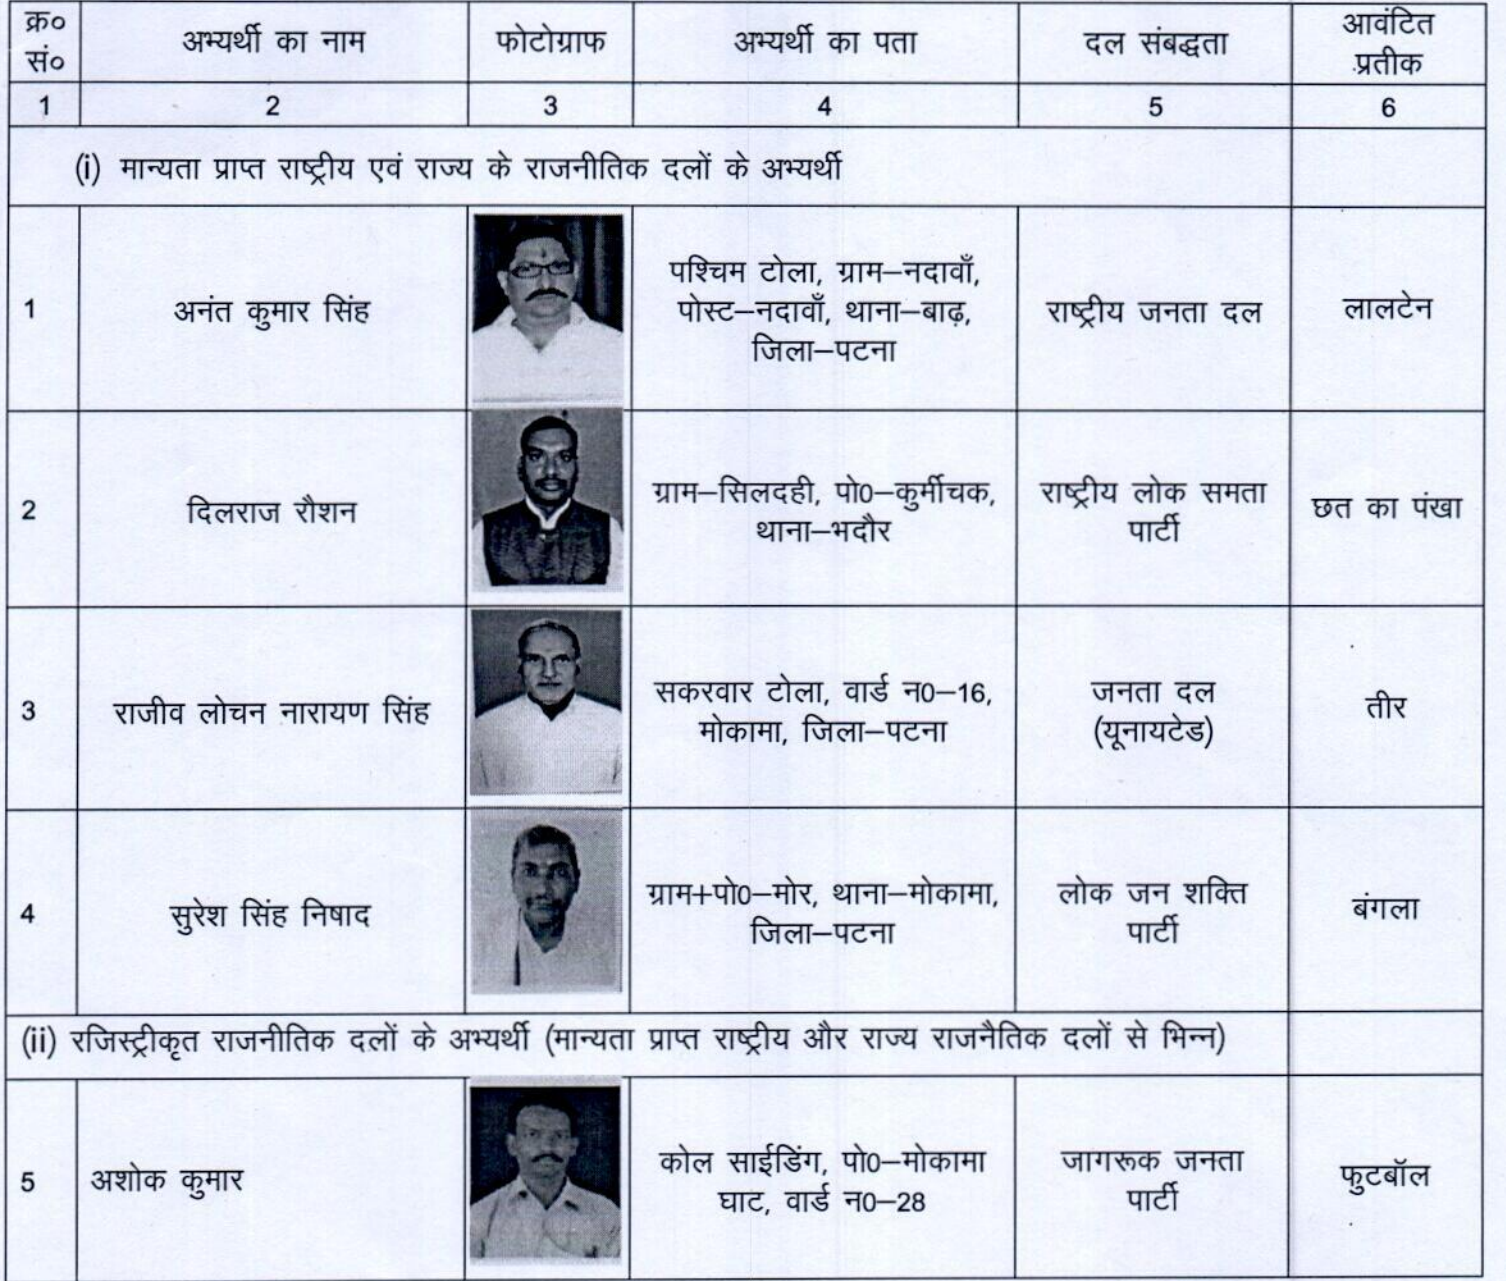 क्र०
सं०
अभ्यर्थी का नाम
फोटोग्राफ
अभ्यर्थी का पता
दल संबद्धता
आवंटित
प्रतीक
1 2 3 4 5 6
(i) मान्यता प्राप्त राष्ट्रीय एवं राज्य के राजनीतिक दलों के अभ्यर्थी
1
अनंत कुमार सिंह
पश्चिम टोला, ग्राम–नदावाँ,
पोस्ट–नदावाँ, थाना–बाढ़,
जिला–पटना
राष्ट्रीय जनता दल
लालटेन
2
दिलराज रौशन
ग्राम–सिलदही, पो0–कुर्मीचक,
थाना–भदौर
राष्ट्रीय लोक समता
पार्टी
छत का पंखा
3
राजीव लोचन नारायण सिंह
सकरवार टोला, वार्ड न0–16,
मोकामा, जिला–पटना
जनता दल
(यूनायटेड)
तीर
4
सुरेश सिंह निषाद
ग्राम+पो0–मोर, थाना–मोकामा,
जिला–पटना
लोक जन शक्ति
पार्टी
बंगला
(ii) रजिस्ट्रीकृत राजनीतिक दलों के अभ्यर्थी (मान्यता प्राप्त राष्ट्रीय और राज्य राजनैतिक दलों से भिन्न)
5
अशोक कुमार
कोल साईडिंग, पो0–मोकामा
घाट, वार्ड न0–28
जागरूक जनता
पार्टी
फुटबॉल